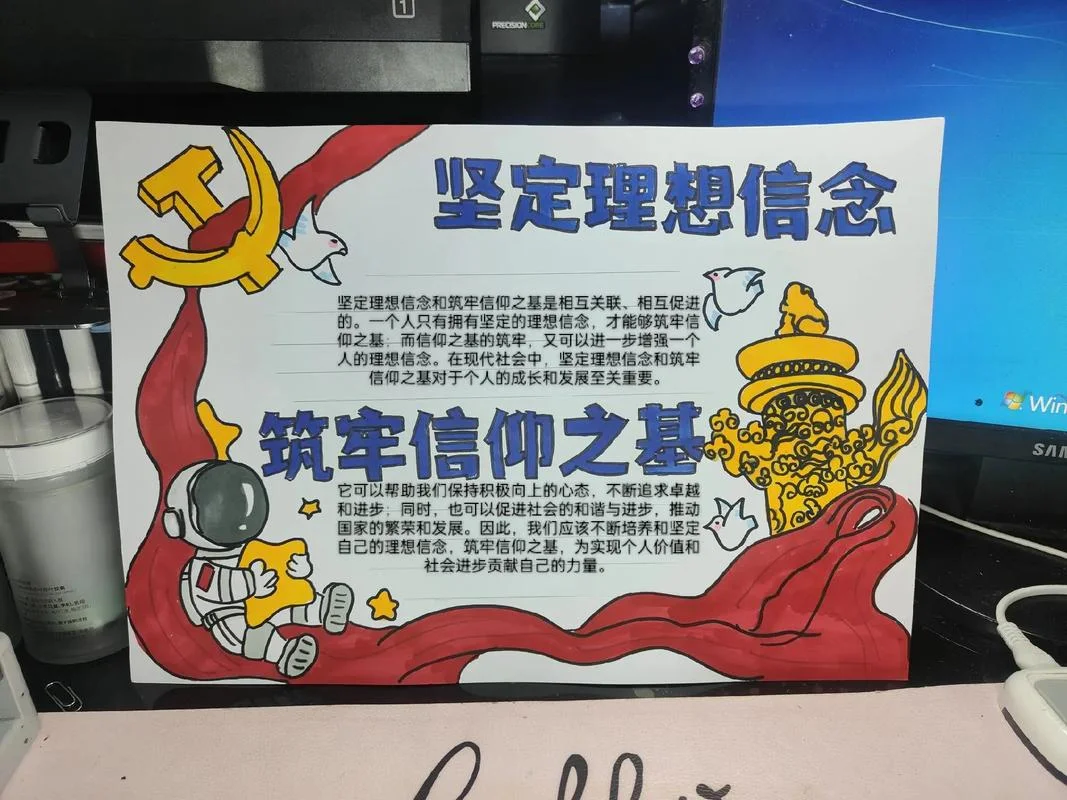 1
PRECISIONCORE
坚定理想信念
坚定理想信念和筑牢信仰之基是相互关联、相互促进
的。一个人只有拥有坚定的理想信念，才能够筑牢信
仰之基；而信仰之基的筑牢，又可以进一步增强一个
人的理想信念。在现代社会中，坚定理想信念和筑牢
信仰之基对于个人的成长和发展至关重要。
Win
SAM
筑牢信仰之基
它可以帮助我们保持积极向上的心态，不断追求卓越
和进步；同时，也可以促进社会的和谐与进步，推动
国家的繁荣和发展。因此，我们应该不断培养和坚定
自己的理想信念，筑牢信仰之基，为实现个人价值和
社会进步贡献自己的力量。